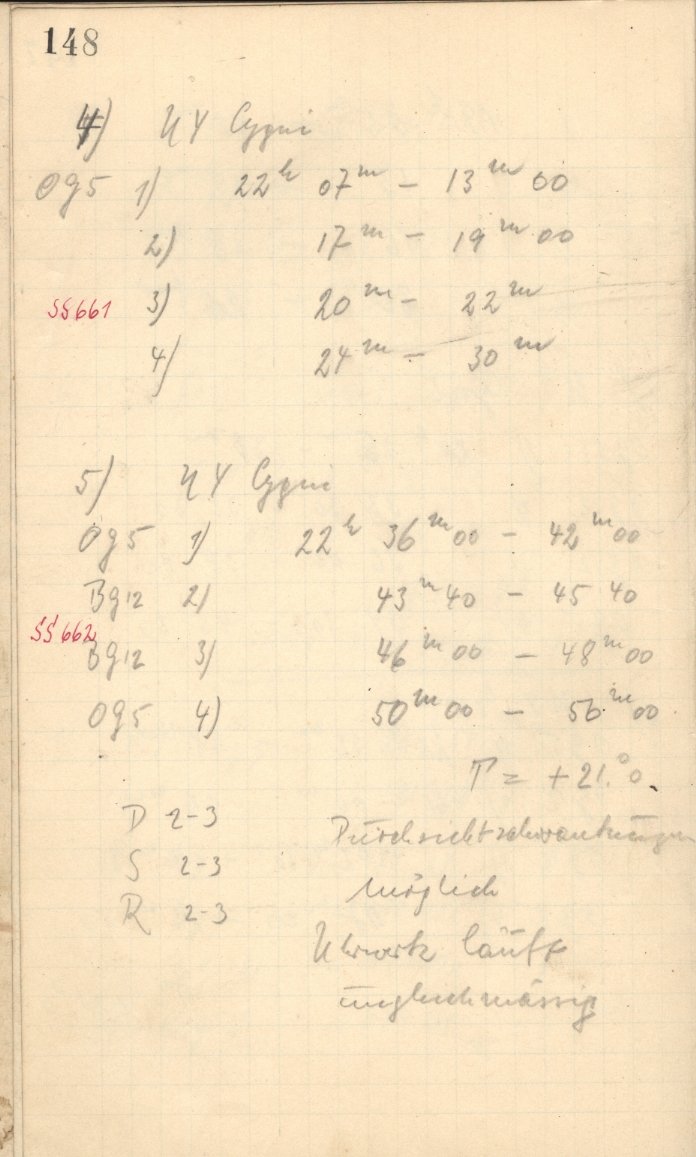 148
4) UY Cygni
Og5 1) 22h 07m - 13m 00
2) 17m - 19m 00
SS 661 3) 20m - 22m
4) 24m - 30m
5) UY Cygni
Og5 1) 22h 36m 00 - 42m 00
Bg12 2) 43m 40 - 45 40
SS 662
Bg12 3) 46m 00 - 48m 00
Og5 4) 50m 00 - 56m 00
T = + 21.°0
D 2-3 Durchsichtschwankungen
S 2-3 möglich
R 2-3
Uhrwerk läuft
ungleichmässig